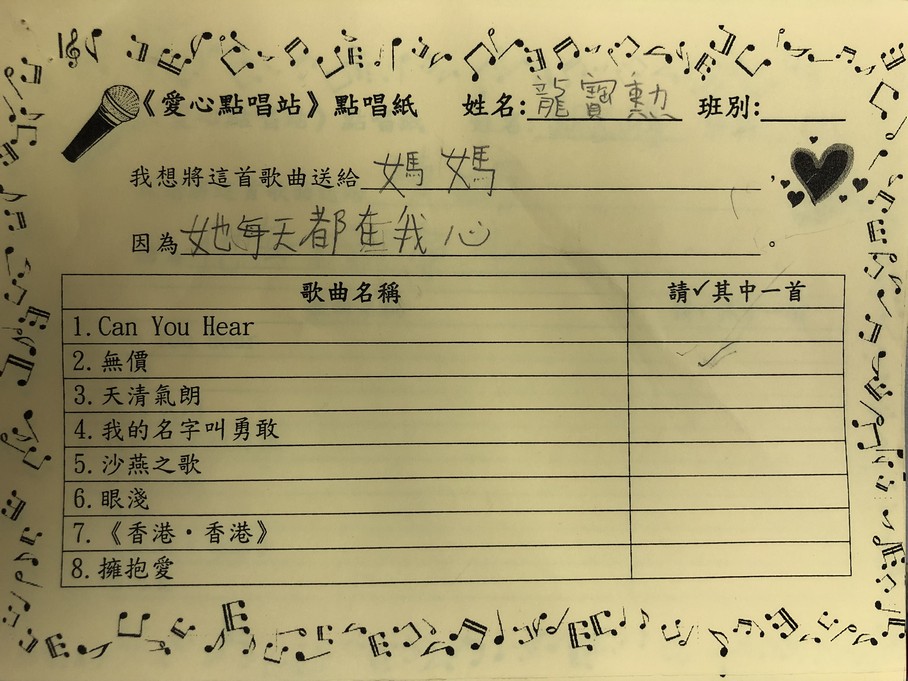 《愛心點唱站》點唱紙 姓名:龍寶勳 班別:
我想將這首歌曲送給媽媽,
因為她每天都在我心。
歌曲名稱 請✓其中一首
1.Can You Hear
2.無價 ✓
3.天清氣朗
4.我的名字叫勇敢
5.沙燕之歌
6.眼淺
7.《香港·香港》
8.擁抱愛